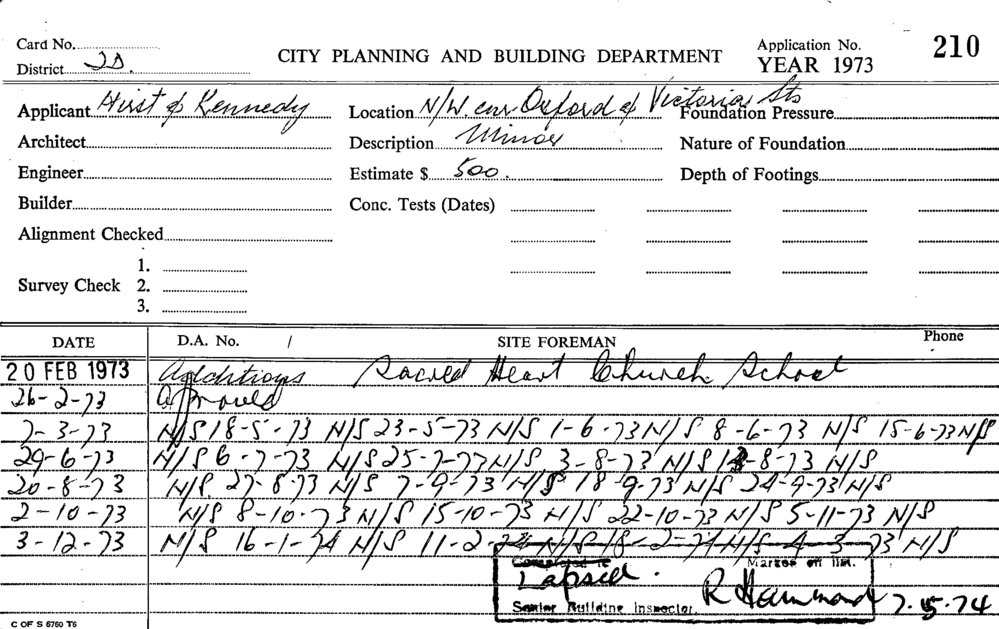 Card No. CITY PLANNING AND BUILDING DEPARTMENT Application No. 210
District 2D. YEAR 1973
Applicant Hirst & Kennedy Location N/W. cnr Oxford & Victoria Sts Foundation Pressure
Architect Description Minor Nature of Foundation
Engineer Estimate $ 500. Depth of Footings
Builder Conc. Tests (Dates)
Alignment Checked
1.
Survey Check 2.
3.
DATE D.A. No. / SITE FOREMAN Phone
20 FEB 1973 Additions Sacred Heart Church School
26-2-73 Approved
7-3-73 N/S 18-5-73 N/S 23-5-73 N/S 1-6-73 N/S 8-6-73 N/S 15-6-73 N/S
29-6-73 N/S 6-7-73 N/S 25-7-73 N/S 3-8-73 N/S 13-8-73 N/S
20-8-73 N/S. 27-8-73 N/S 7-9-73 N/S 18-9-73 N/S 24-9-73 N/S
2-10-73 N/S 8-10-73 N/S 15-10-73 N/S 22-10-73 N/S 5-11-73 N/S
3-12-73 N/S 16-1-74 N/S 11-2-74 N/S 18-2-74 N/S 4-3-73 N/S
Completed re Marked off list.
Lapsed.
Senior Building Inspector. R Hammond 7.5.74
C OF S 6760 T6